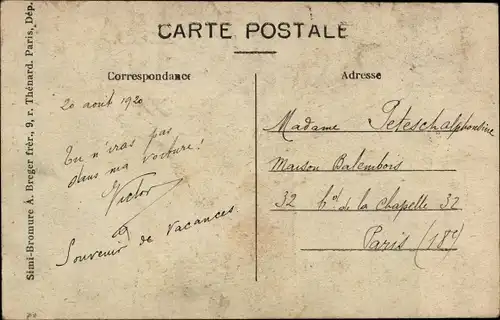 CARTE POSTALE
Correspondance
20 août 1920
Tu n'iras pas
dans ma voiture!
Victor
Souvenir de Vacances
Adresse
Madame Peteschalphonsine
Maison Balembors
32 de la chapelle 32
Paris (18e)
Sémi-Bromure A. Breger frèr., 9, r. Thénard. Paris, Dép.